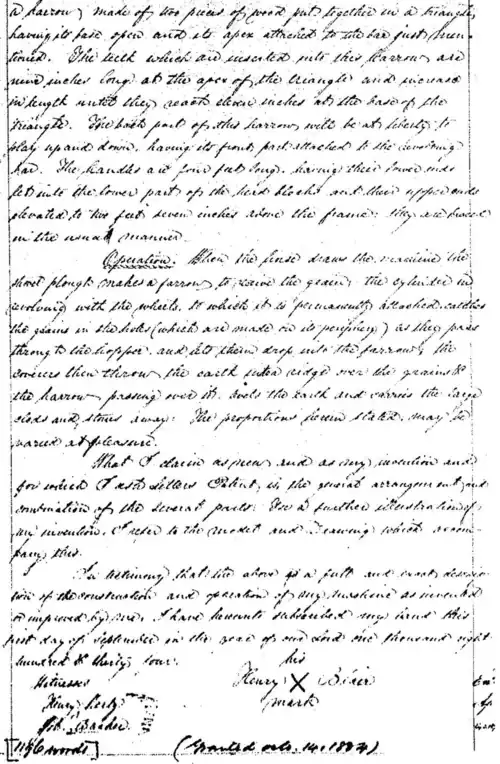 a harrow, made of two pieces of wood put together in a triangle,
having its base open and its apex attached to the bar just men-
tioned. The teeth which are inserted into this harrow are
nine inches long at the apex of the triangle and increase
in length until they reach eleven inches at the base of the
triangle. The back part of this harrow will be at liberty to
play up and down, having its front part attached to the revolving
bar. The handles are four feet long, having their lower ends
let into the lower part of the blocks and their upper ends
elevated to two feet seven inches above the frame; they are braced
in the usual manner.
Operation. When the horse draws the machine the
shovel plough makes a furrow to receive the grain; the cylinder in
revolving with the wheels, to which it is permanently attached, catches
the grains in the holes (which are made on its periphery) as they pass
through the hopper and lets them drop into the furrow; the
coverers then throw the earth into a ridge over the grains &
the harrow passing over it, levels the earth and carries the large
clods and stones away. The proportions herein stated may be
varied at pleasure.
What I claim as new and as my invention and
for which I ask Letters Patent, is the general arrangement and
combination of the several parts. For a further illustration of
my invention, I refer to the model and drawing which accom-
pany this.
In testimony that the above is a full and exact descrip-
tion of the construction and operation of my machine as invented
or improved by me, I have hereunto subscribed my hand this
first day of September in the year of our Lord one thousand eight
hundred & thirty four. his
Witnesses Henry X Blair
Henry mark
[1156 words] (Granted Oct. 14. 1834)